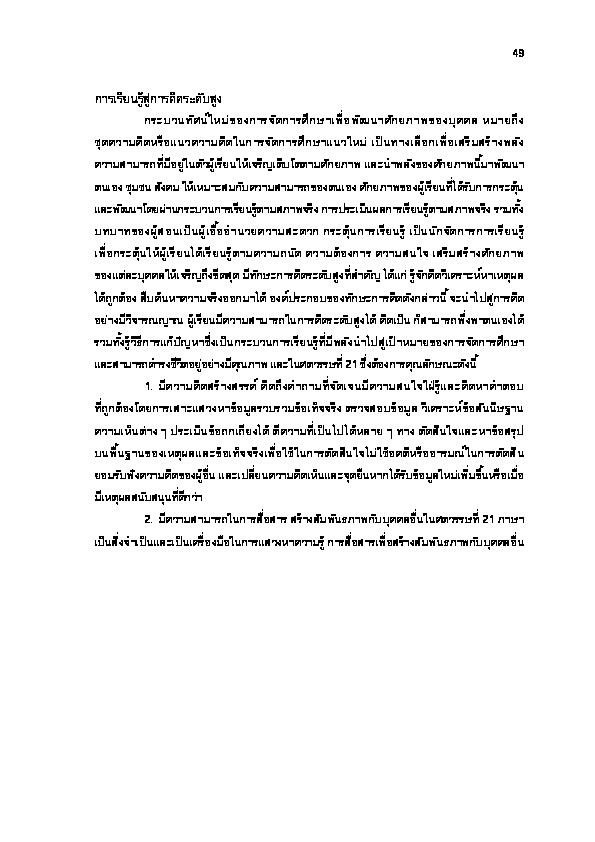 49
การเรียนรู้สู่การคิดระดับสูง
กระบวนทัศน์ใหม่ของการจัดการศึกษาเพื่อพัฒนาศักยภาพของบุคคล หมายถึง
ชุดความคิดหรือแนวความคิดในการจัดการศึกษาแนวใหม่ เป็นทางเลือกเพื่อเสริมสร้างพลัง
ความสามารถที่มีอยู่ในตัวผู้เรียนให้เจริญเติบโตตามศักยภาพ และนำพลังของศักยภาพนี้มาพัฒนา
ตนเอง ชุมชน สังคม ให้เหมาะสมกับความสามารถของตนเอง ศักยภาพของผู้เรียนที่ได้รับการกระตุ้น
และพัฒนาโดยผ่านกระบวนการเรียนรู้ตามสภาพจริง การประเมินผลการเรียนรู้ตามสภาพจริง รวมทั้ง
บทบาทของผู้สอนเป็นผู้เอื้ออำนวยความสะดวก กระตุ้นการเรียนรู้ เป็นนักจัดการการเรียนรู้
เพื่อกระตุ้นให้ผู้เรียนได้เรียนรู้ตามความถนัด ความต้องการ ความสนใจ เสริมสร้างศักยภาพ
ของแต่ละบุคคลให้เจริญถึงขีดสุด มีทักษะการคิดระดับสูงที่สำคัญ ได้แก่ รู้จักคิดวิเคราะห์หาเหตุผล
ได้ถูกต้อง สืบค้นหาความจริงออกมาได้ องค์ประกอบของทักษะการคิดดังกล่าวนี้ จะนำไปสู่การคิด
อย่างมีวิจารณญาณ ผู้เรียนมีความสามารถในการคิดระดับสูงได้ คิดเป็น ก็สามารถพึ่งพาตนเองได้
รวมทั้งรู้วิธีการแก้ปัญหาซึ่งเป็นกระบวนการเรียนรู้ที่มีพลังนำไปสู่เป้าหมายของการจัดการศึกษา
และสามารถดำรงชีวิตอยู่อย่างมีคุณภาพ และในศตวรรษที่ 21 ซึ่งต้องการคุณลักษณะดังนี้
1. มีความคิดสร้างสรรค์ คิดถึงคำถามที่จัดเจนมีความสนใจใฝ่รู้และคิดหาคำตอบ
ที่ถูกต้องโดยการเสาะแสวงหาข้อมูลรวบรวมข้อเท็จจริง ตรวจสอบข้อมูล วิเคราะห์ข้อสันนิษฐาน
ความเห็นต่าง ๆ ประเมินข้อถกเถียงได้ ตีความที่เป็นไปได้หลาย ๆ ทาง ตัดสินใจและหาข้อสรุป
บนพื้นฐานของเหตุผลและข้อเท็จจริงเพื่อใช้ในการตัดสินใจไม่ใช้อคติหรืออารมณ์ในการตัดสิน
ยอมรับฟังความคิดของผู้อื่น และเปลี่ยนความคิดเห็นและจุดยืนหากได้รับข้อมูลใหม่เพิ่มขึ้นหรือเมื่อ
มีเหตุผลสนับสนุนที่ดีกว่า
2. มีความสามารถในการสื่อสาร สร้างสัมพันธภาพกับบุคคลอื่นในศตวรรษที่ 21 ภาษา
เป็นสิ่งจำเป็นและเป็นเครื่องมือในการแสวงหาความรู้ การสื่อสารเพื่อสร้างสัมพันธภาพกับบุคคลอื่น